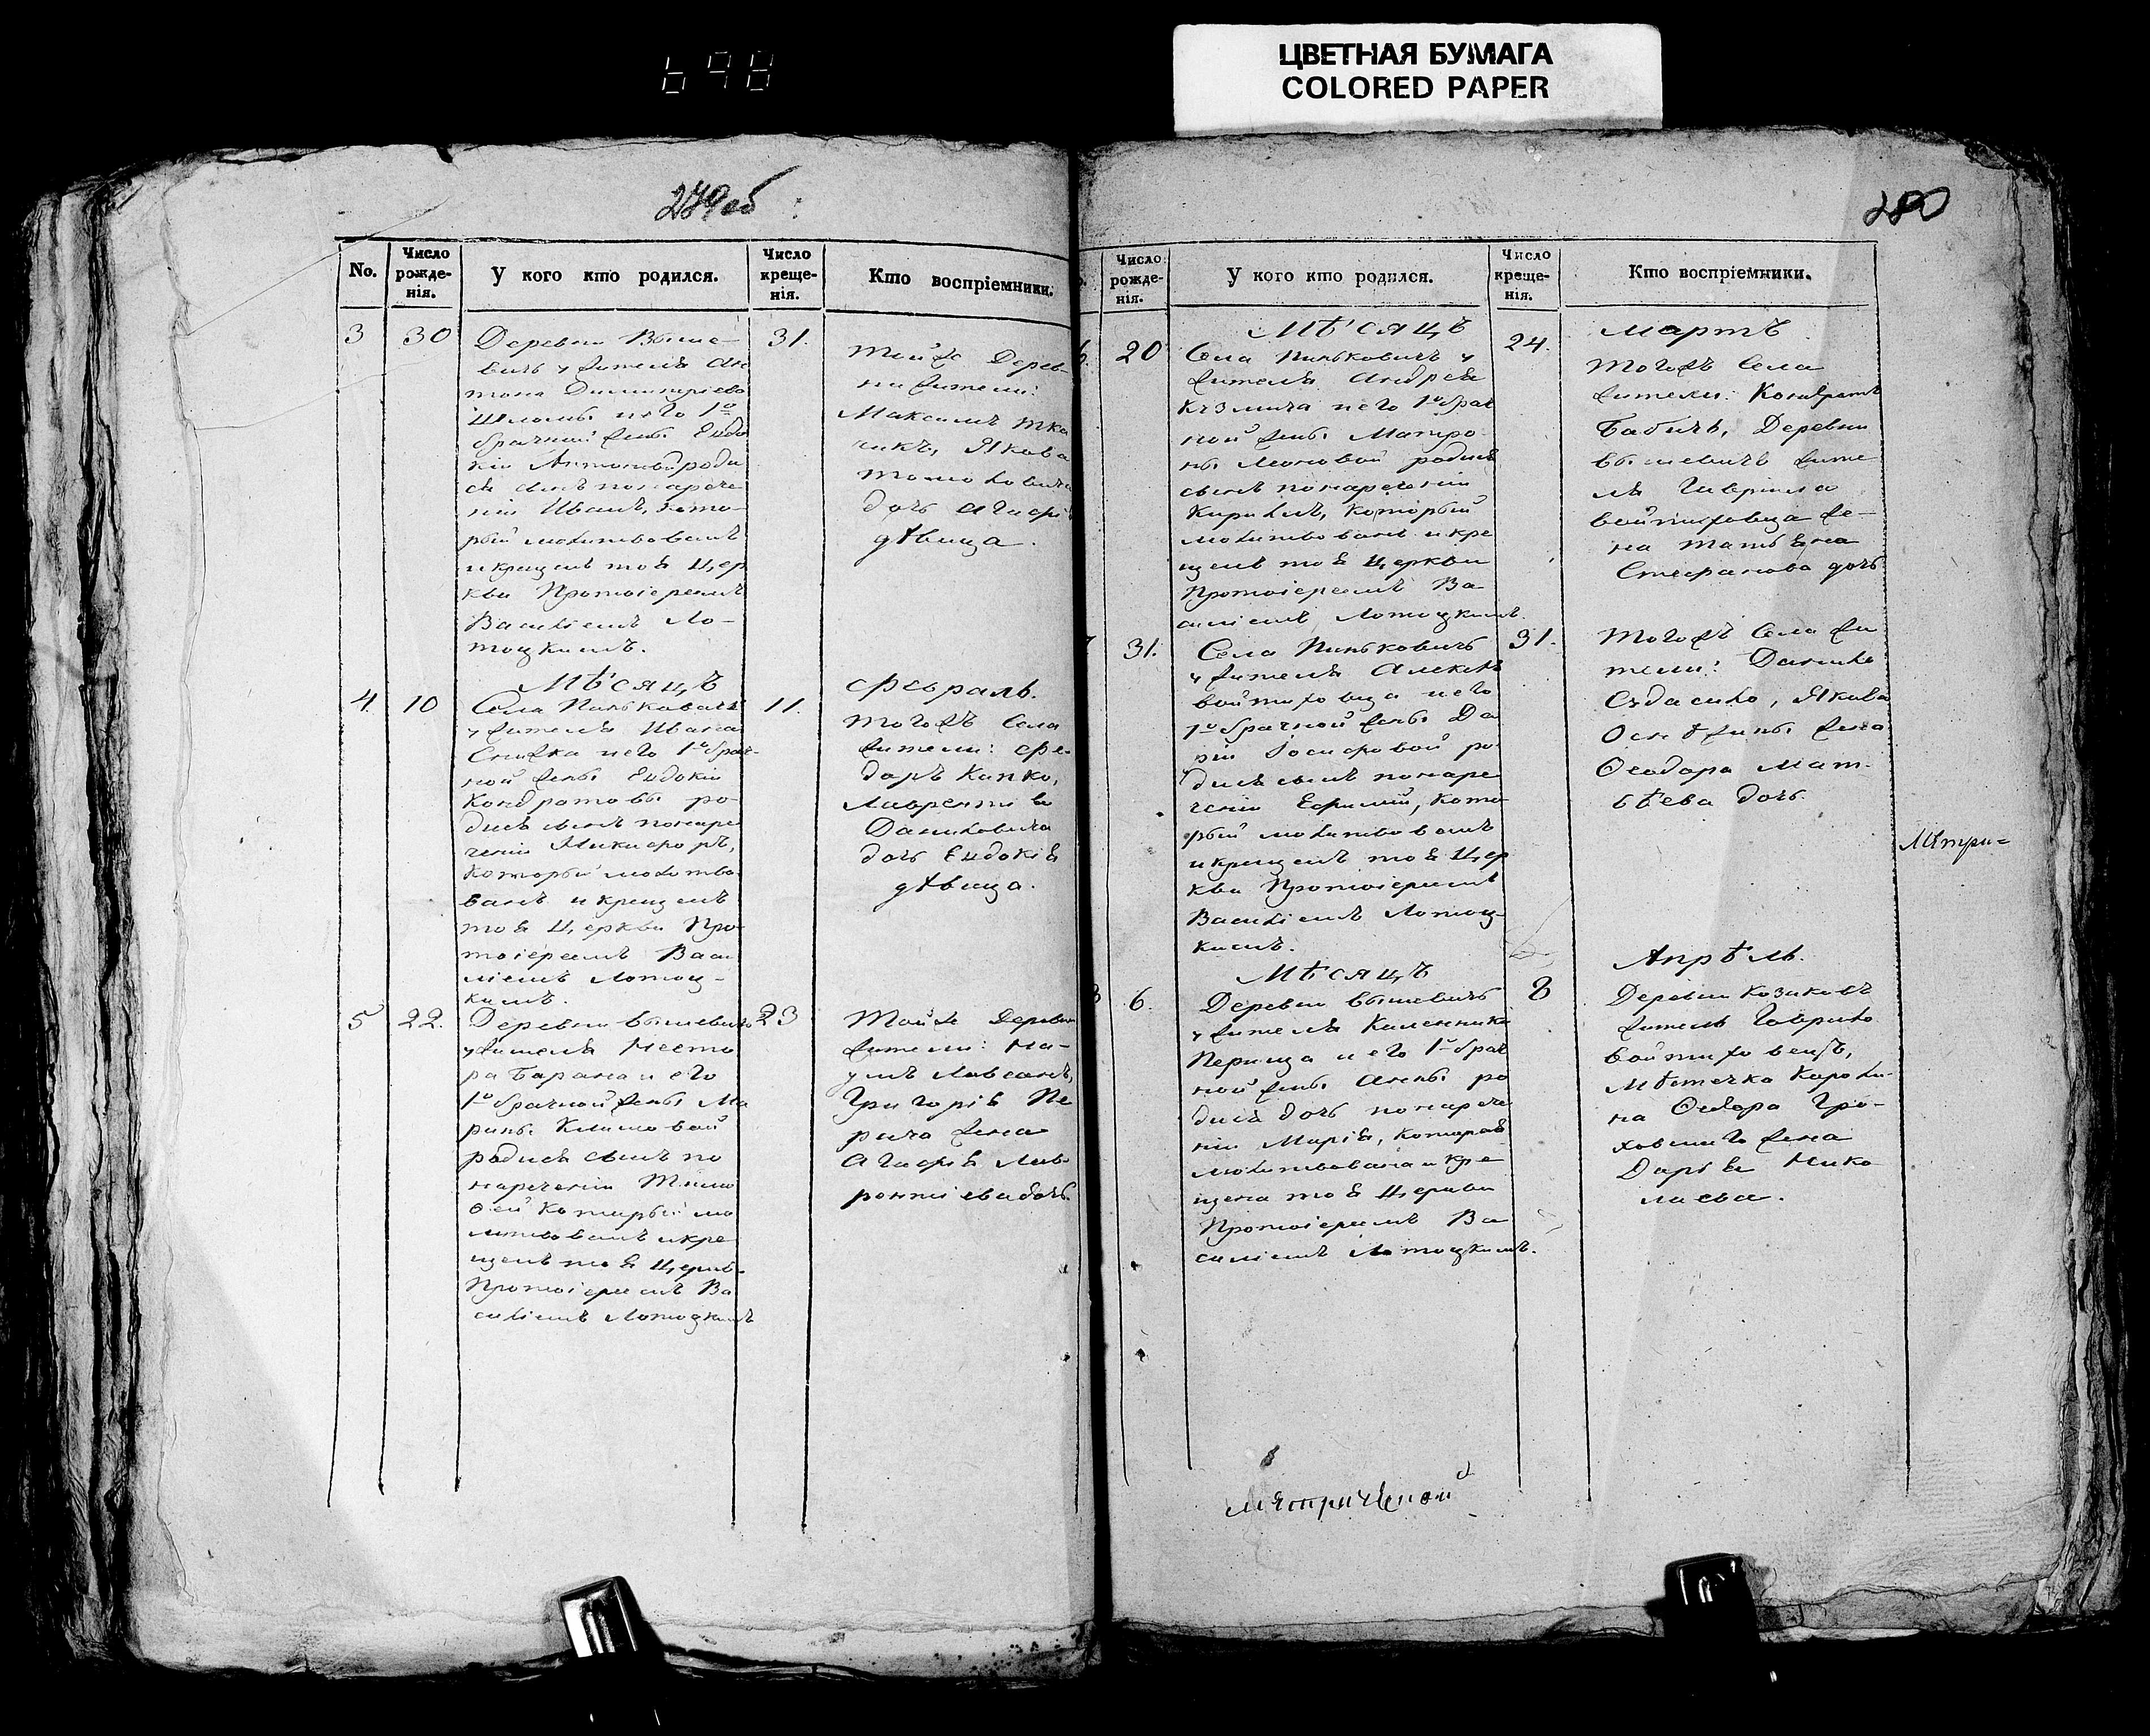 698
ЦВЕТНАЯ БУМАГА
COLORED PAPER
279 об
No.
Число рожденія.
У кого кто родился.
Число крещенія.
Кто воспріемники.
3
30
Деревни Выше-
вичь у жителя Ан
тона Димитріева
и его 1о
брачный жены Евдо
кіи Антоновой роди
ся сынъ по нарече
ніи Иванъ, кото-
рый молитвованъ
и крещенъ тоя Цер
кви Протоіереемъ
Василіемъ Ло-
тоцкимъ.
31.
Тойже Дерев-
ни жители:
Максимъ Тка
чикъ, Якова
дочь Агафія
дѣвица.
Мѣсяцъ
Февраль.
4.
10
Села Пинькович
у жителя Ивана
Снитка и его 1о брач-
ной жены Евдокіи
Кондратовы ро-
дися сынъ по наре
ченіи Никифоръ,
который молитво
ванъ и крещенъ
тоя Церкви Про-
тоіереемъ Васи
ліемъ Лотоц-
кимъ.
11.
Тогожъ Села
жители: Фе-
доръ Кипко,
Лаврентія
Даниловича
дочь Евдокія
дѣвица.
5
22.
Деревни Вышевичь
у жителя Несто
ра Барана и его
1о брачной жены Ма
рины Климовой
родися сынъ по
нареченіи Тимо
ѳей который мо
литвованъ и кре
щенъ тоя Церкв
Протоіереемъ Ва
силіемъ Лотоцкимъ
23
Тойже Деревни
жители: На-
умъ Ливсанъ,
Григорія Пе
рича жена
Агафія Лав-
рентіева дочь.
280
Число рожденія.
У кого кто родился.
Число крещенія.
Кто воспріемники.
Мѣсяцъ
Мартъ
6.
20
Села Пинькович у
жителя Андрея
Кузмича и его 1о брач
ной жены Матро
ны родися
сынъ по нареченіи
Кирилъ, который
молитвованъ и кре
щенъ тоя Церкви
Протоіереемъ Ва-
силіемъ Лотоцкимъ.
24.
Тогожъ Села
жители: Кондратъ
Бабичь, Деревни
Вышевичь жите
ля Гавріила
Войтиховца же-
на Татьяна
Стефанова дочь
31.
Села Пинковичь
у жителя Алексѣя
Войтиховца и его
1о брачной жены Да
ріи Іосифовой ро-
дися сынъ по наре
ченіи Ефимій, кото-
рый молитвованъ
и крещенъ тоя Цер
кви Протоіереемъ
Василіемъ Лотоц-
кимъ.
31.
Тогожъ Села жи
тели: Данило
Якова
жена
Ѳеодора Мат-
ѳѣева дочь.
Метри=
Мѣсяцъ
Апрѣль.
6.
Деревни Вышевичь
у жителя Каленника
Перица и его 1о брач
ной жены Анны ро
дися дочь по нарече
ніи Марія, которая
молитвована и кре
щена тоя Церкви
Протоіереемъ Ва
силіемъ Лотоцкимъ.
8
Деревни Козиковъ
житель Гаврило
Войтиховецъ,
Мѣстечка Короли-
на Ѳедора Гро-
ховскаго жена
Дарья Нико
лаева.
метрической